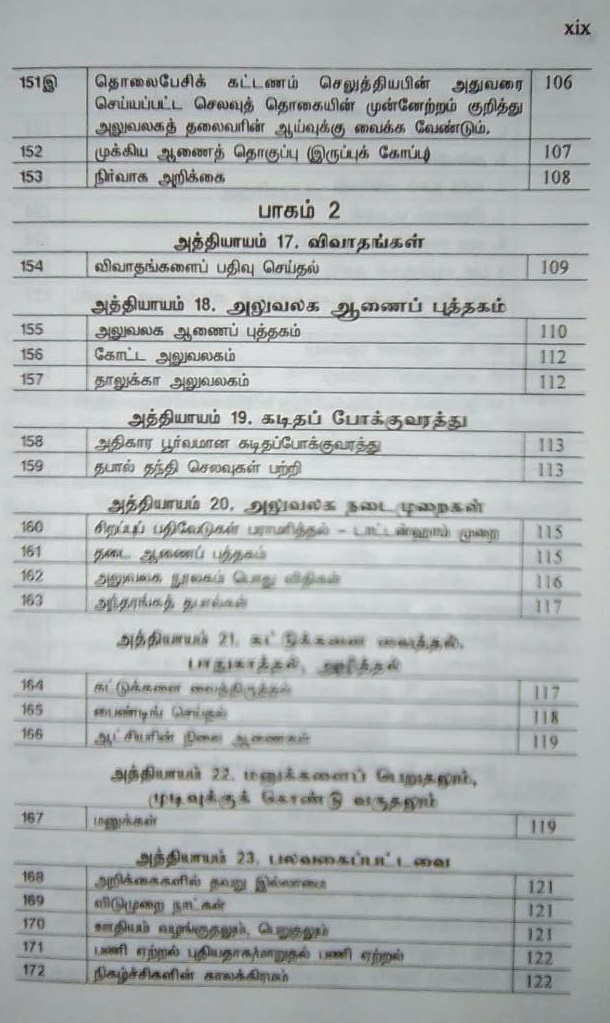 xix
151இ தொலைபேசிக் கட்டணம் செலுத்தியபின் அதுவரை 106
செய்யப்பட்ட செலவுத் தொகையின் முன்னேற்றம் குறித்து
அலுவலகத் தலைவரின் ஆய்வுக்கு வைக்க வேண்டும்.
152 முக்கிய ஆணைத் தொகுப்பு (இருப்புக் கோப்பு) 107
153 நிர்வாக அறிக்கை 108
பாகம் 2
அத்தியாயம் 17. விவாதங்கள்
154 விவாதங்களைப் பதிவு செய்தல் 109
அத்தியாயம் 18. அலுவலக ஆணைப் புத்தகம்
155 அலுவலக ஆணைப் புத்தகம் 110
156 கோட்ட அலுவலகம் 112
157 தாலுக்கா அலுவலகம் 112
அத்தியாயம் 19. கடிதப் போக்குவரத்து
158 அதிகார பூர்வமான கடிதப்போக்குவரத்து 113
159 தபால் தந்தி செலவுகள் பற்றி 113
அத்தியாயம் 20. அலுவலக நடைமுறைகள்
160 சிறப்புப் பதிவேடுகள் பராமரித்தல் – டாட்டன்ஹாம் முறை 115
161 தடை ஆணைப் புத்தகம் 115
162 அலுவலக நூலகம் பொது விதிகள் 116
163 அந்தரங்கத் தபால்கள் 117
அத்தியாயம் 21. கட்டுக்களை வைத்தல்,
பாதுகாத்தல், அழித்தல்
164 கட்டுக்களை வைத்திருத்தல் 117
165 பைண்டிங் செய்தல் 118
166 ஆட்சியரின் நிலை ஆணைகள் 119
அத்தியாயம் 22. மனுக்களைப் பெறுதலும்,
முடிவுக்குக் கொண்டு வருதலும்
167 மனுக்கள் 119
அத்தியாயம் 23. பல்வகைப்பாட்டவை
168 அறிக்கைகளில் தவறு இல்லாமை 121
169 விடுமுறை நாட்கள் 121
170 ஊதியம் வழங்குதலும், பெறுதலும் 121
171 பணி ஏற்றல் புதியதாக/மாறுதல் பணி ஏற்றல் 122
172 நிகழ்ச்சிகளின் காலக்கிரமம் 122